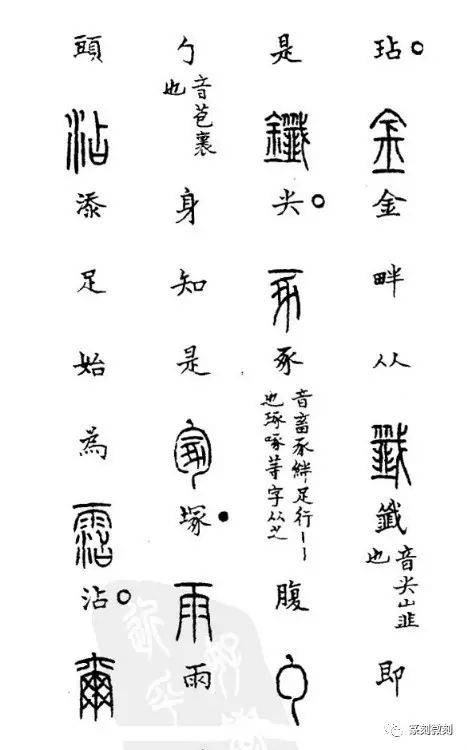 玷○金金畔从韱韱音尖山韭也即
是鑯尖○豖豖音畜豕絆足行丨丨也琢啄等字从之腹勹
勹音苞裹也身知是冢塚●雨雨
頭沾添足始為霑沾○爾
篆刻微刻